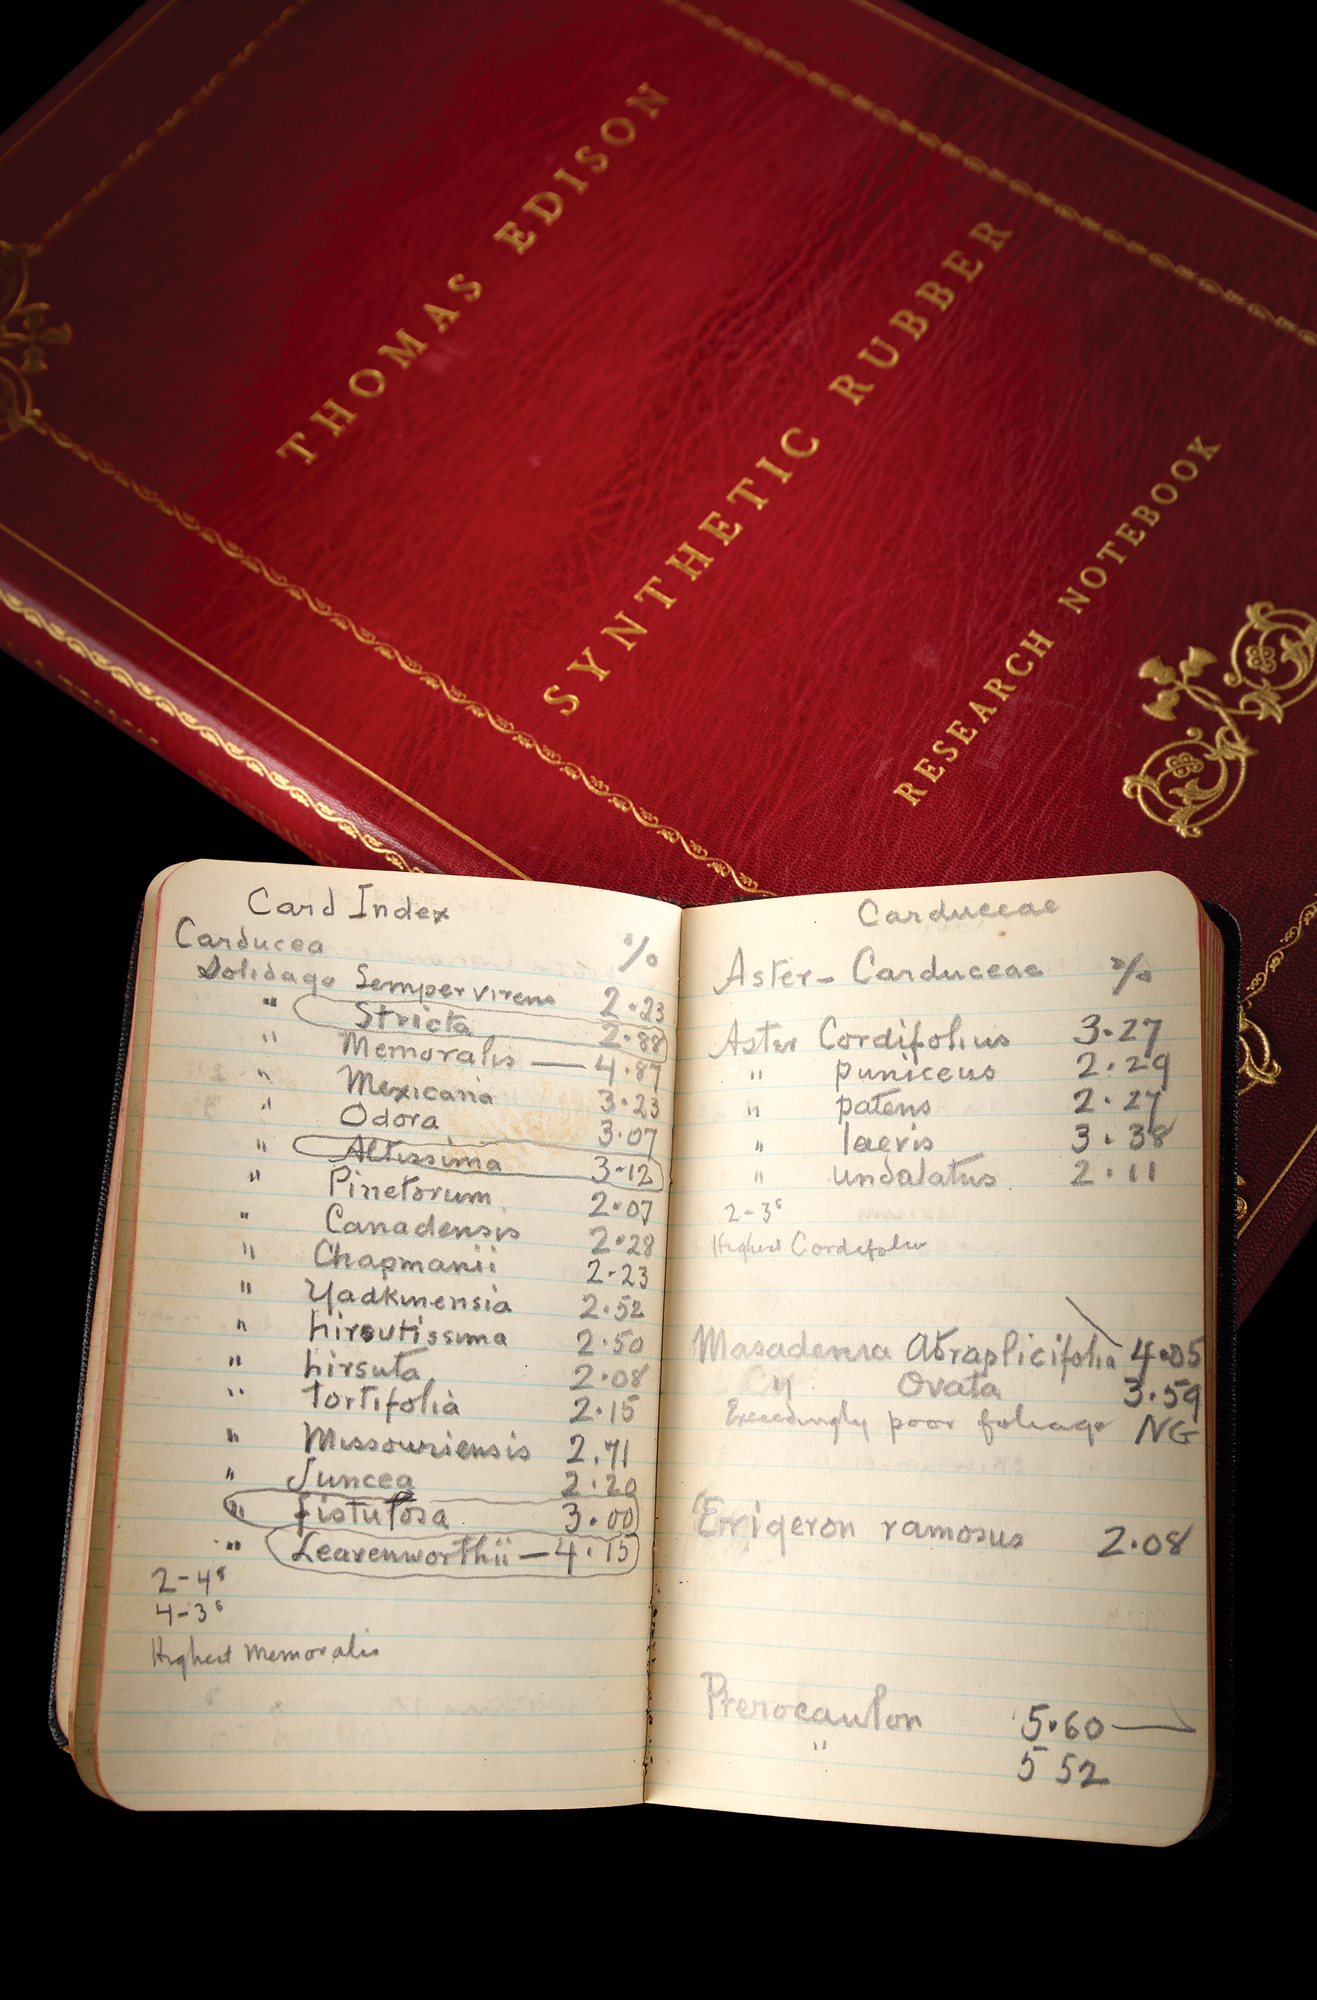 THOMAS EDISON
SYNTHETIC RUBBER
RESEARCH NOTEBOOK
Card Index
Carducea %
Solidago Sempervirens 2.23
" Stricta 2.88
" Memoralis — 4.87
" Mexicana 3.23
" Odora 3.07
" Altissima 3-12
" Pinetorum 2.07
" Canadensis 2.28
" Chapmanii 2-23
" Yadkinensia 2.52
" hirsutissima 2.50
" hirsuta 2.08
" tortifolia 2.15
" Missouriensis 2.71
" Juncea 2.20
" fistulosa 3.00
" Leavenworthii — 4.15
2-4s
4-3s
Highest Memoralis
Carduceae
Aster - Carduceae %
Aster Cordifolius 3.27
" puniceus 2.29
" patens 2.27
" laevis 3.38
" undalatus 2.11
2-3s
Highest Cordifolius
Masadenia Atraplicifolia 4.05
Ovata 3.59
Exceedingly poor foliage NG
Erigeron ramosus 2.08
Pterocaulon 5.60 —
" 5 52